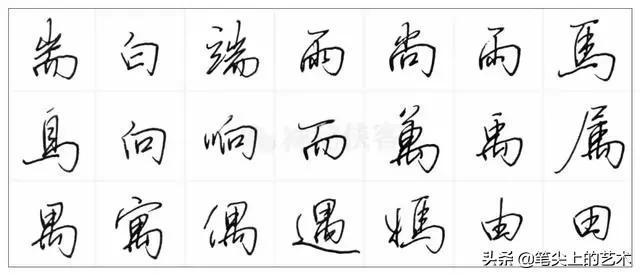 耑 白 端 雨 尚 雨 馬
鳥 向 响 而 萬 禹 属
禺 寓 偶 遇 媽 由 田
头条 @笔尖上的艺术